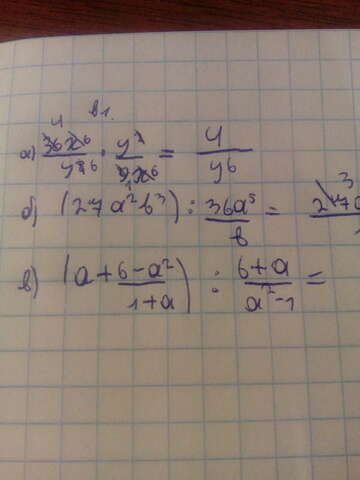 в1.
а) 36x⁶/y⁸⁶ · y²/9x⁶ = 4/y⁶
б) (27a²b³) : 36a⁵/b = 3
в) (a + 6-a²/1+a) : 6+a/a²-1 =